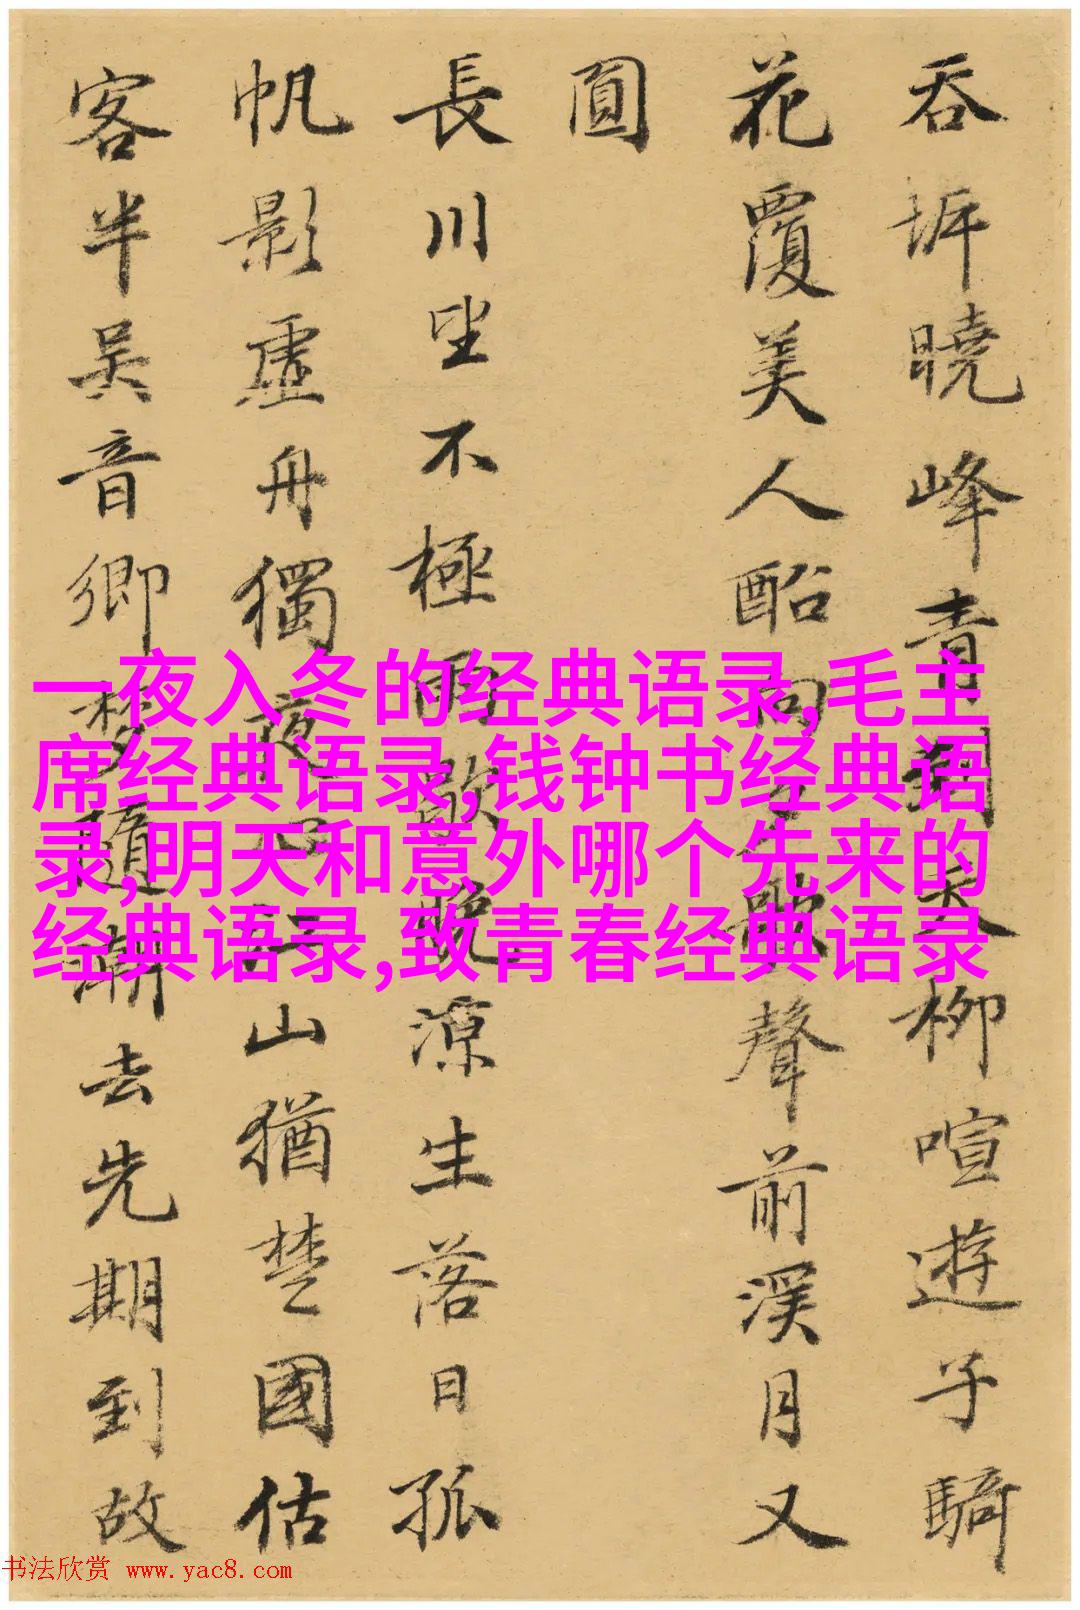 吞圻曉峰青翻天柳喧遊子騎
花覆美人酣向夕歌聲前溪月又
圓
長川坐不極雨歇晚涼生落日孤
帆影虛舟獨夜心江山猶楚國估
客半吴音鄉梦隨潮去先期到故
一夜入冬的经典语录,毛主
席经典语录,钱钟书经典语
录,明天和意外哪个先来的
经典语录,致青春经典语录
书法欣赏 www.yac8.com